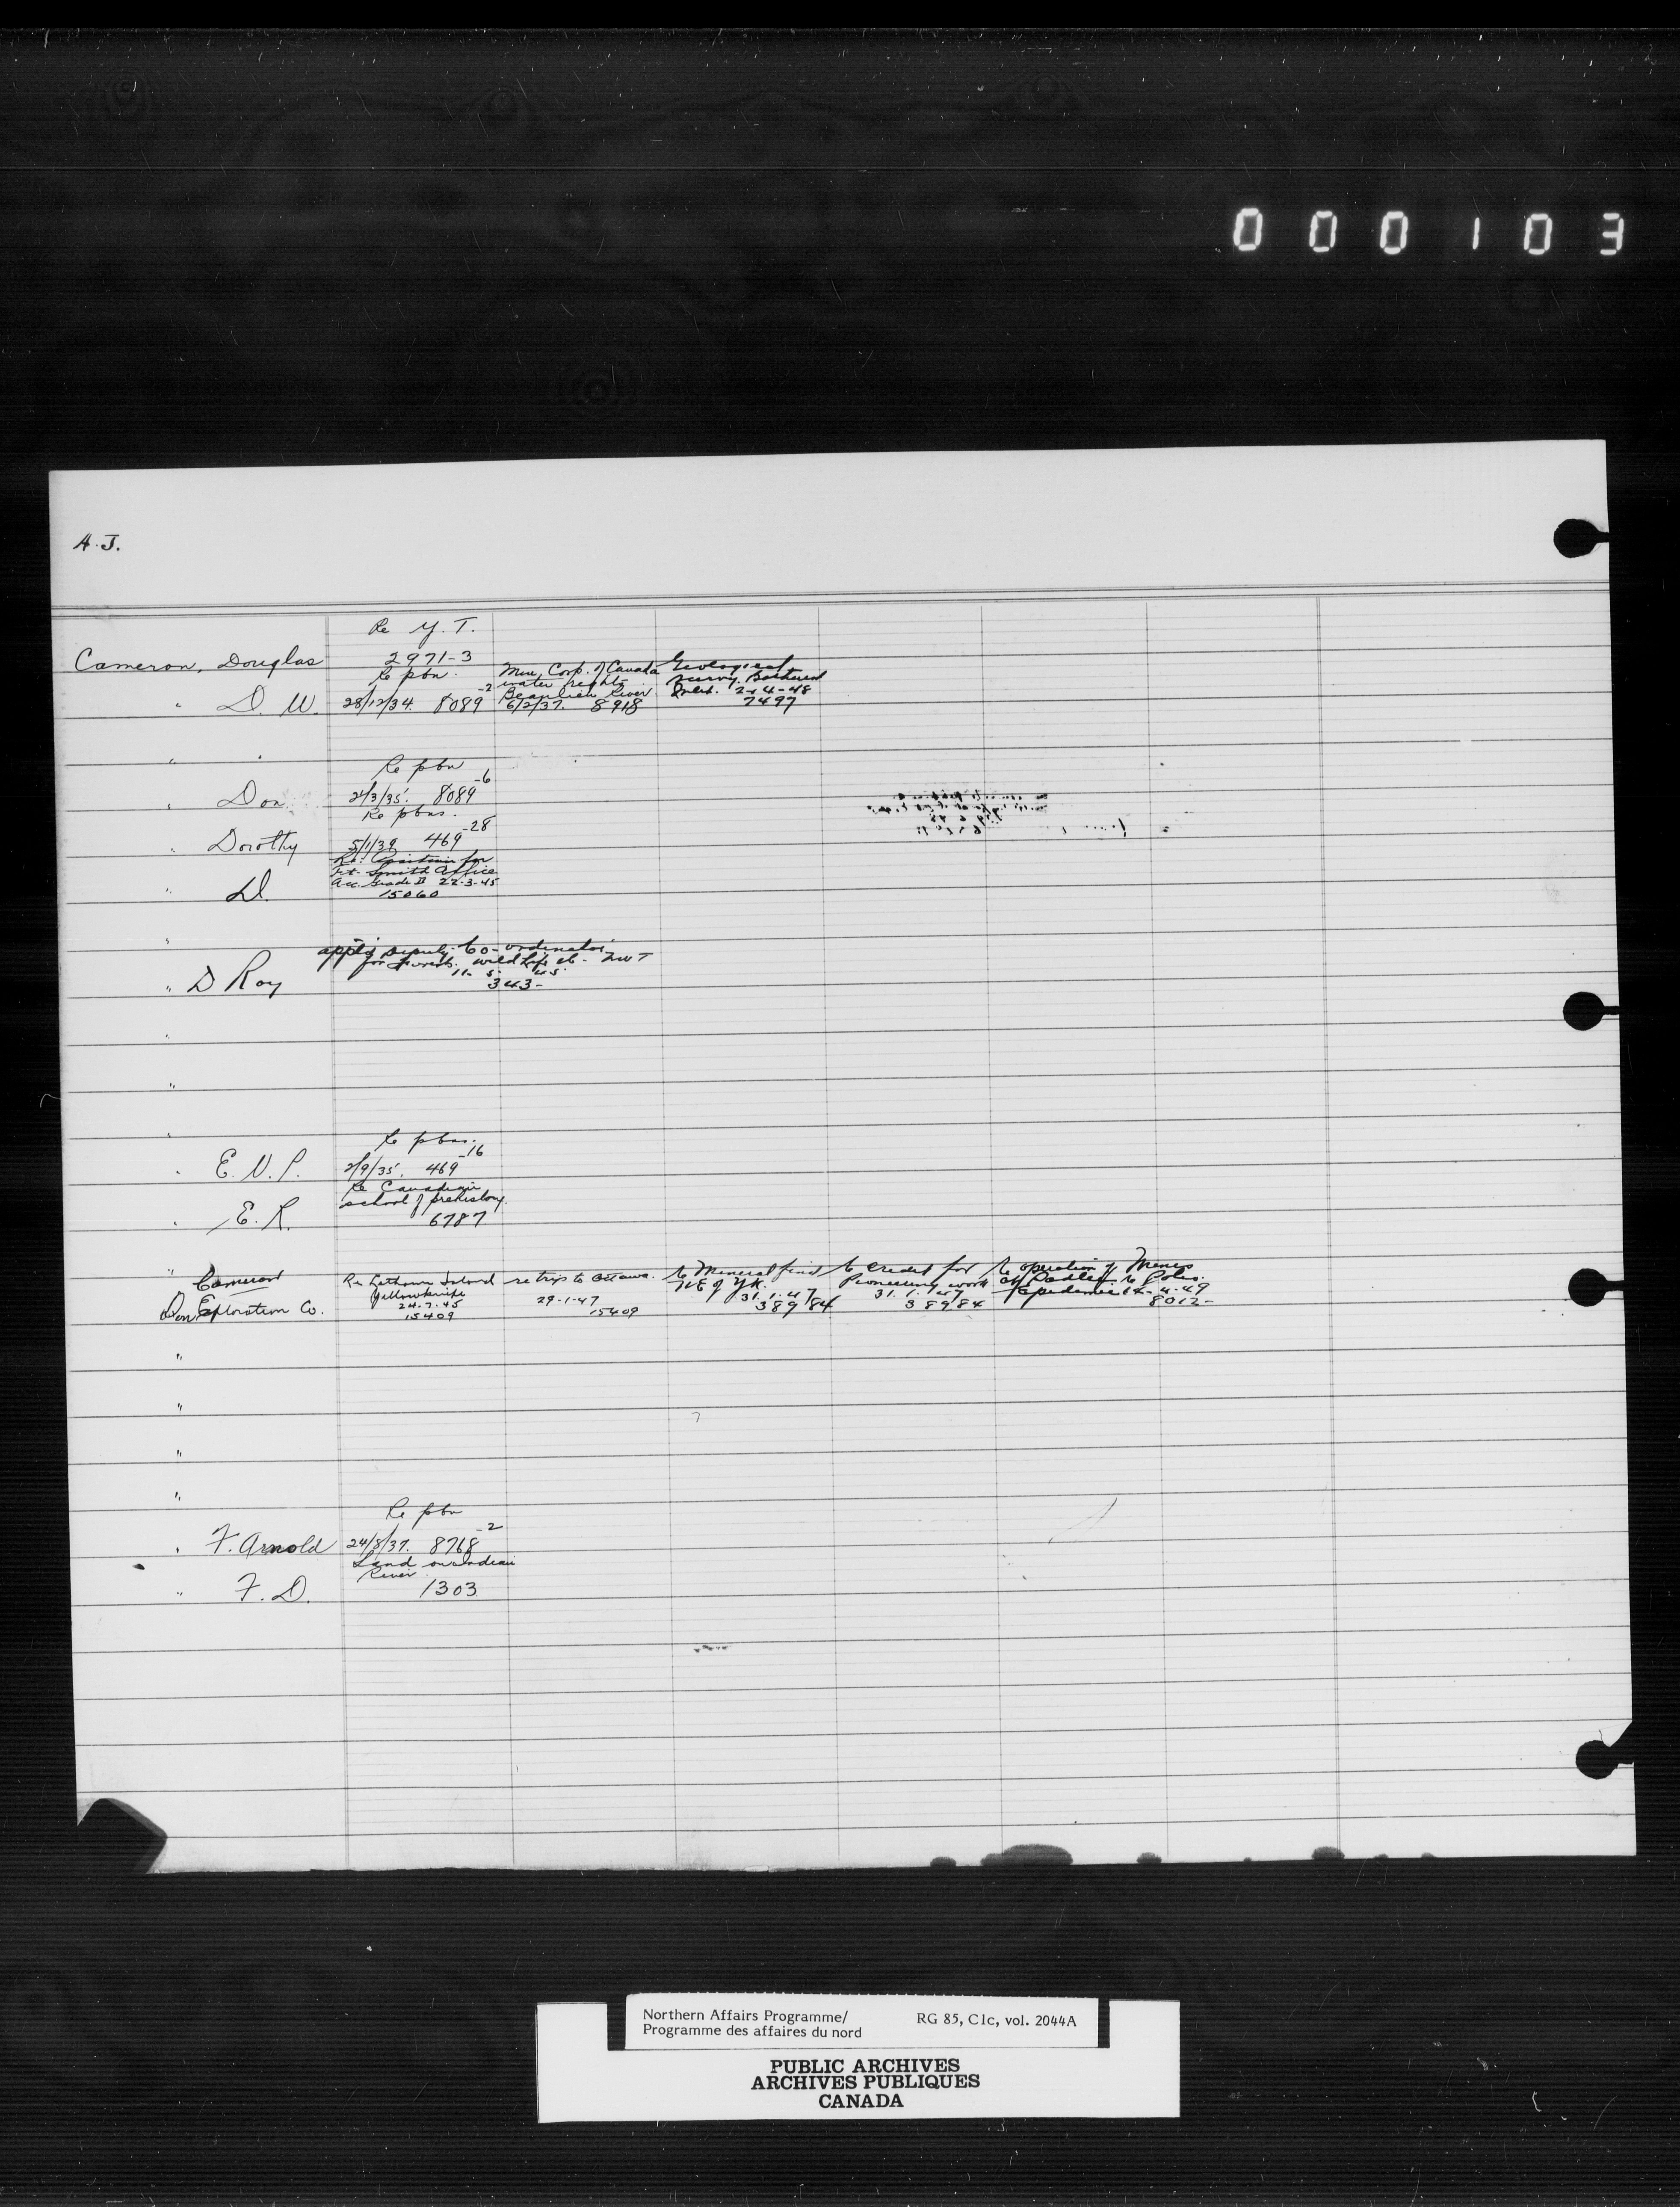 000103
A. J.
Re Y. T.
Cameron, Douglas 2971-3
Re pbn. Mine Corp. of Canada Geological
water rights survey.
" D. W. 28/12/34. 8089-2 Beaulieu River 2-4-48
6/2/37. 8918 7497
" "
Re pbn
" Don 2/3/35. 8089-6
Re pbns.
" Dorothy 5/1/39 469-28
Re. Position for
Ft. Smith Office
Acc. Grade II 22-3-45
" D. 15060
"
Deputy Co-ordinator
for wild life NWT
11. 5. 45.
" D Roy 343-
"
"
"
Re pbns.
" E. N. P. 2/9/35. 469-16
Re Canadian
school of prehistory.
" E. R. 6787
"
Cameron Re Lathom Island re trip to Ottawa. Re Mineral find Re credit for Re operation of Mines
Yellowknife NE of YK. Pioneering work Re Polio.
Don Exploration Co. 24-7-45 29-1-47 31.1.47 31.1.47 Epidemic 12-4-49
15409 15409 38984 38984 8012-
"
"
"
"
Re pbn
" F. Arnold 24/8/37. 8768-2
Land on Indian
River.
" F. D. 1303
Northern Affairs Programme/ RG 85, C1c, vol. 2044A
Programme des affaires du nord
PUBLIC ARCHIVES
ARCHIVES PUBLIQUES
CANADA